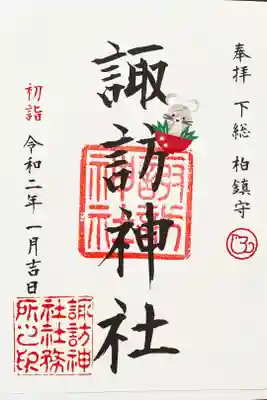 奉拝 下総 柏鎮守
諏訪神社
諏訪神社
初詣
令和二年 一月吉日
諏訪神
社社務
所之印